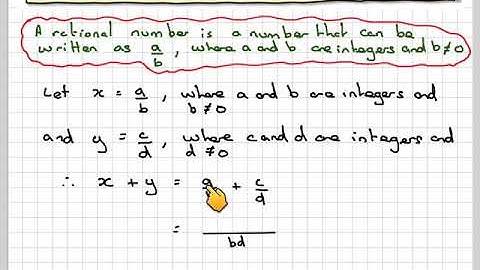 A rational number is a number that can be
written as a/b , where a and b are integers and b≠0
Let x = a/b , where a and b are integers and
b≠0
and y = c/d , where c and d are integers and
d≠0
∴ x + y = a/ + c/d
= /bd